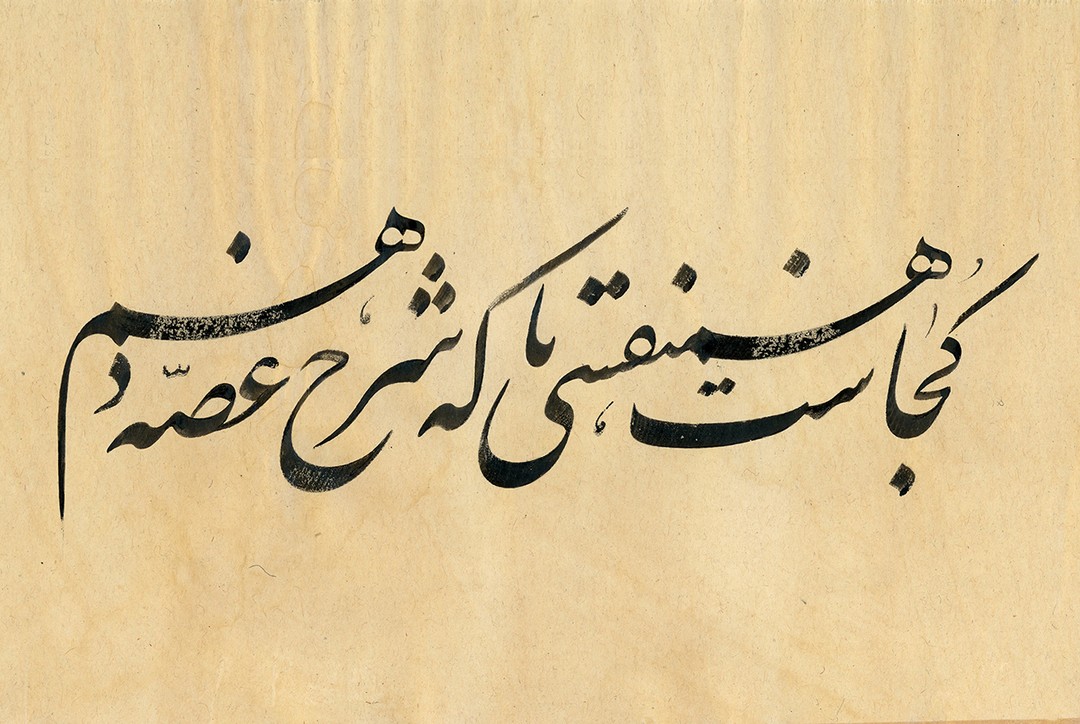 کُجاست همنفسی تا که شرح غصّه دهم